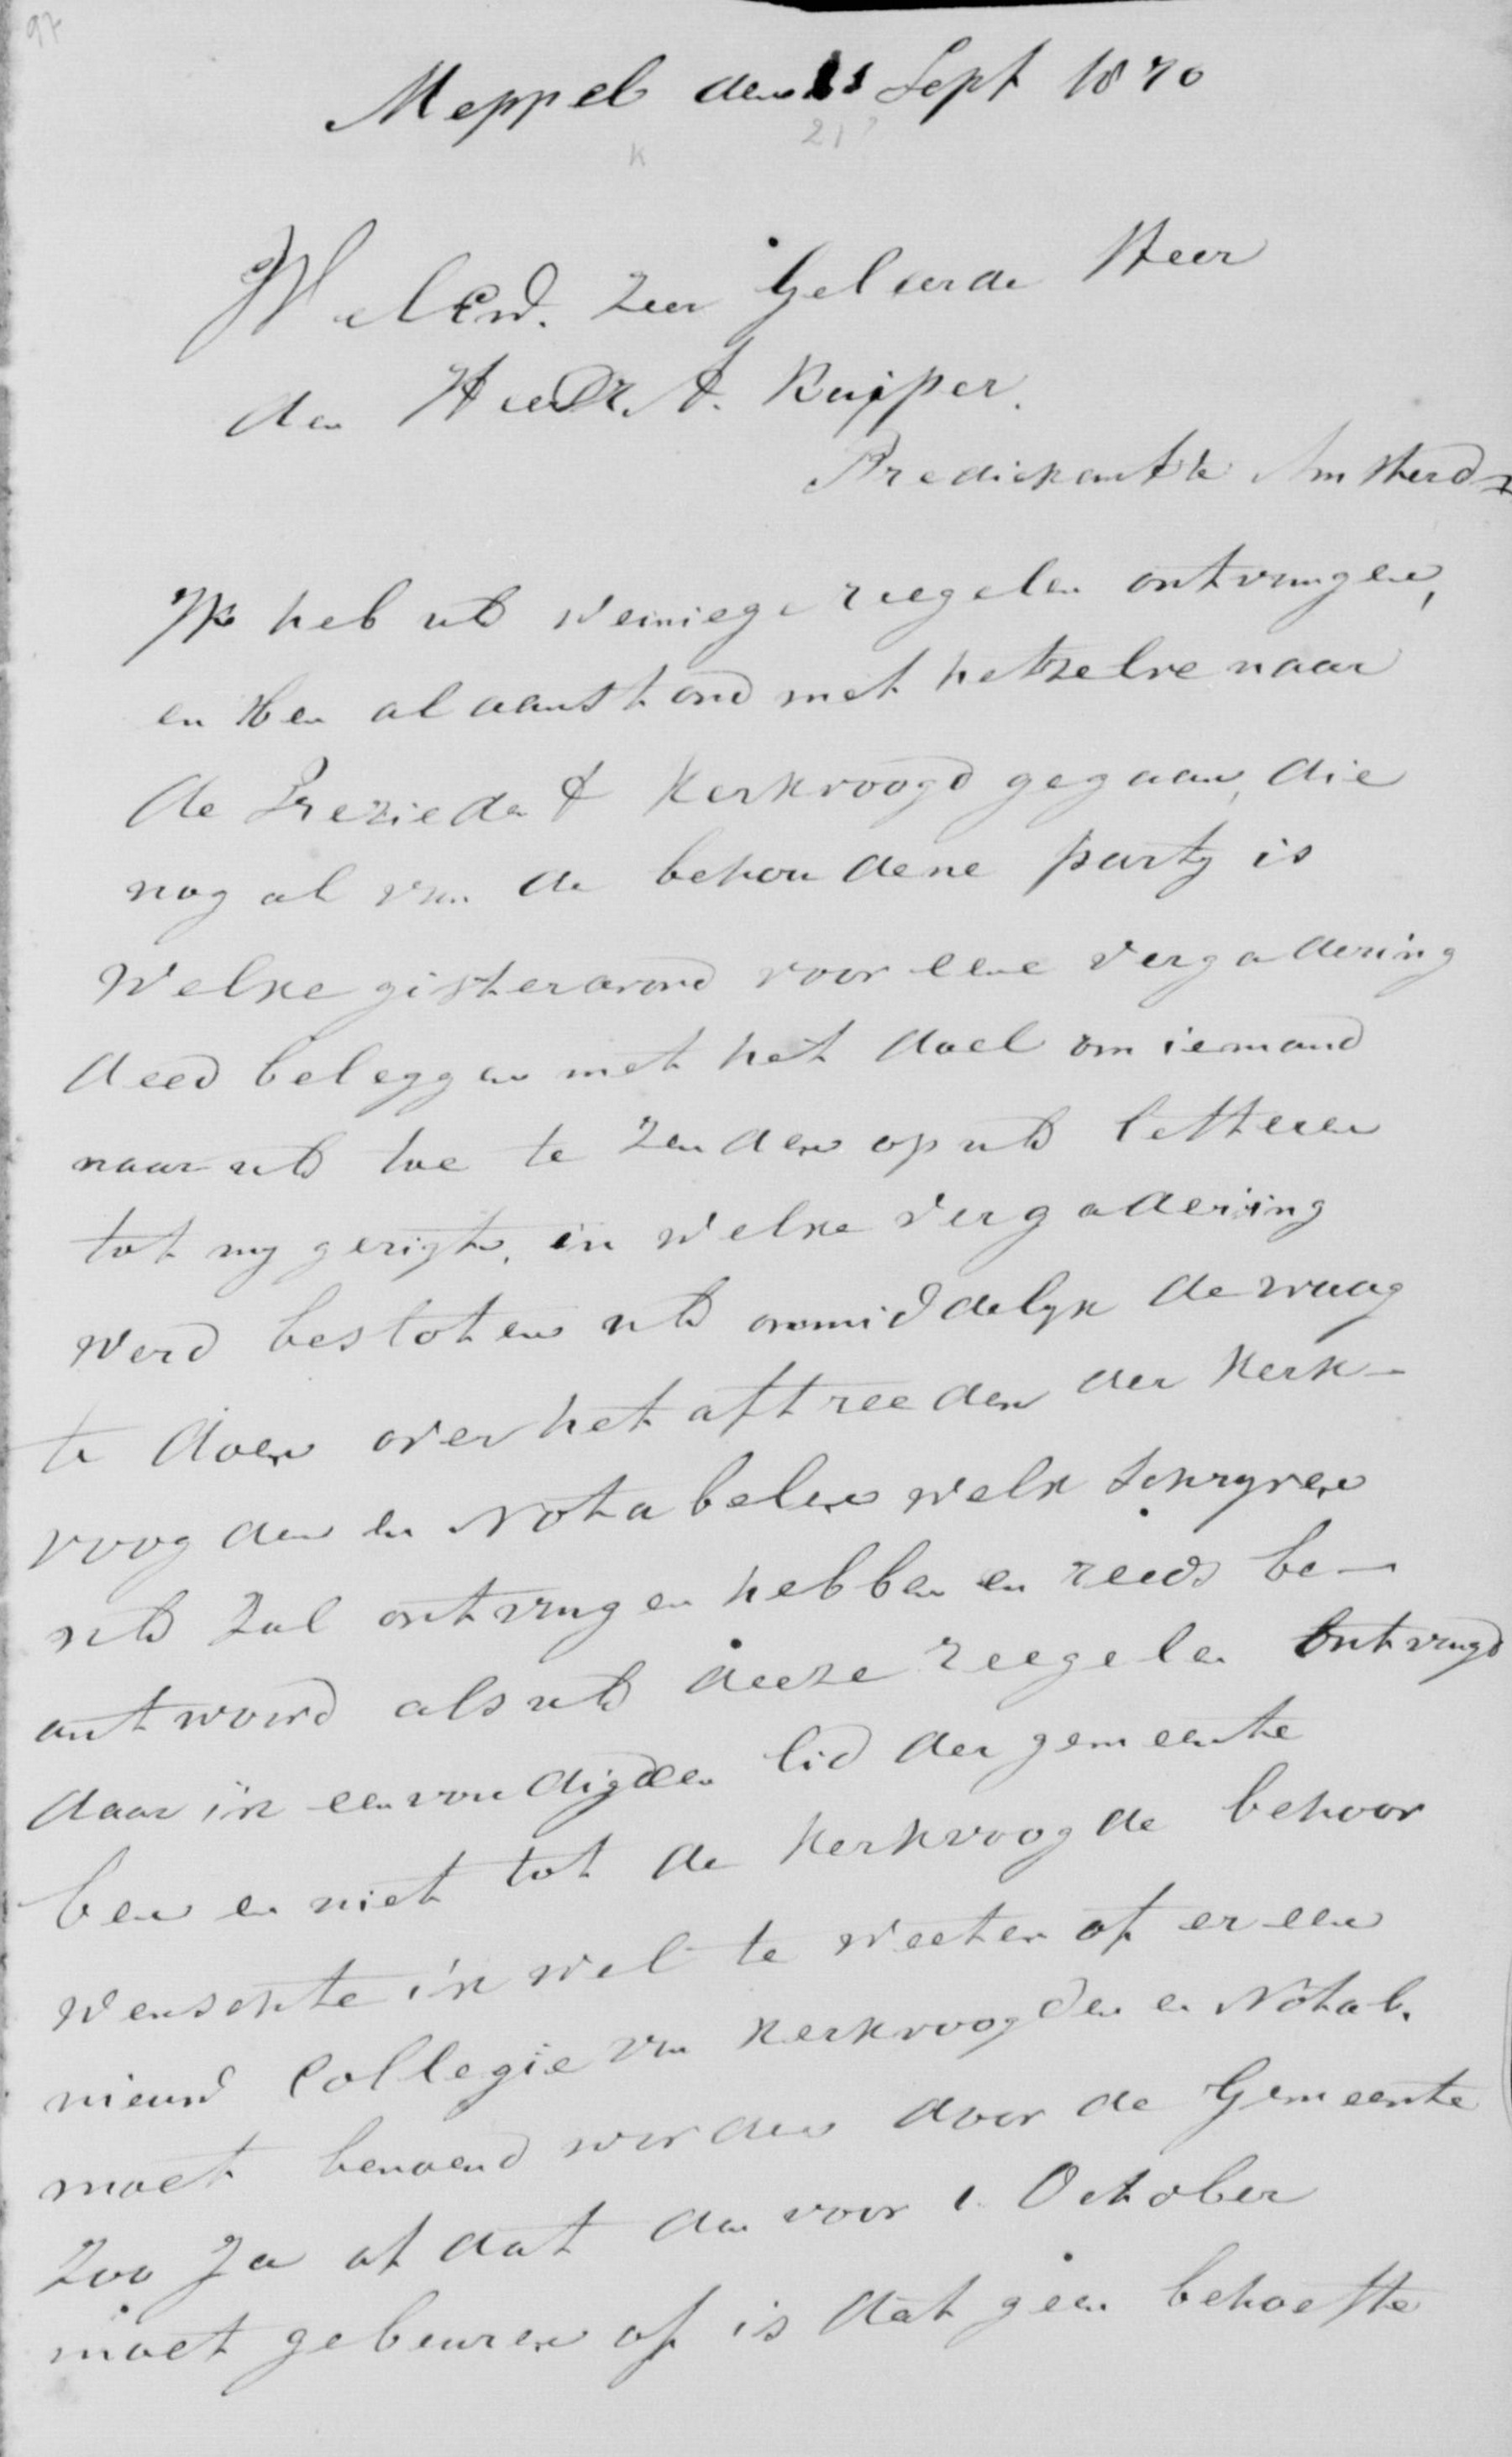 97
Meppel den 21 Sept 1870
k 21?
WelEerw. Zeer Geleerde Heer
den Heer Dr. A. Kuijper.
Predickant te Amsterd
Ik heb uEd weiniege reegelen ontvangen,
en ben al aanstond met hetzelve naar
de Preziedent Kerkvoogd gegaan, die
nog al van de behoudene party is
Welke gisteravond voor eene vergadering
deed beleggen met het doel om iemand
naar uEd toe te zenden op uEd letteren
tot my gerigte, in welke vergadering
werd besloten uEd onmiddelyk de vraag
te doen over het aftreeden der Kerk-
voogden en Notabelen welk schryven
uEd zal ontvangen hebben en reeds be-
antwoord als uEd deeze reegelen ontvangd
daar ik eenvoudigden lid der gemeente
ben en niet tot de Kerkvoogde behoor
wenschte ik wel te weeten of er een
nieuw Collegie van Kerkvoogden en Notab.
moet benoend worden door de Gemeente
Zoo Ja of dat dan voor 1. October
moet gebeuren of is dat geen behoefte